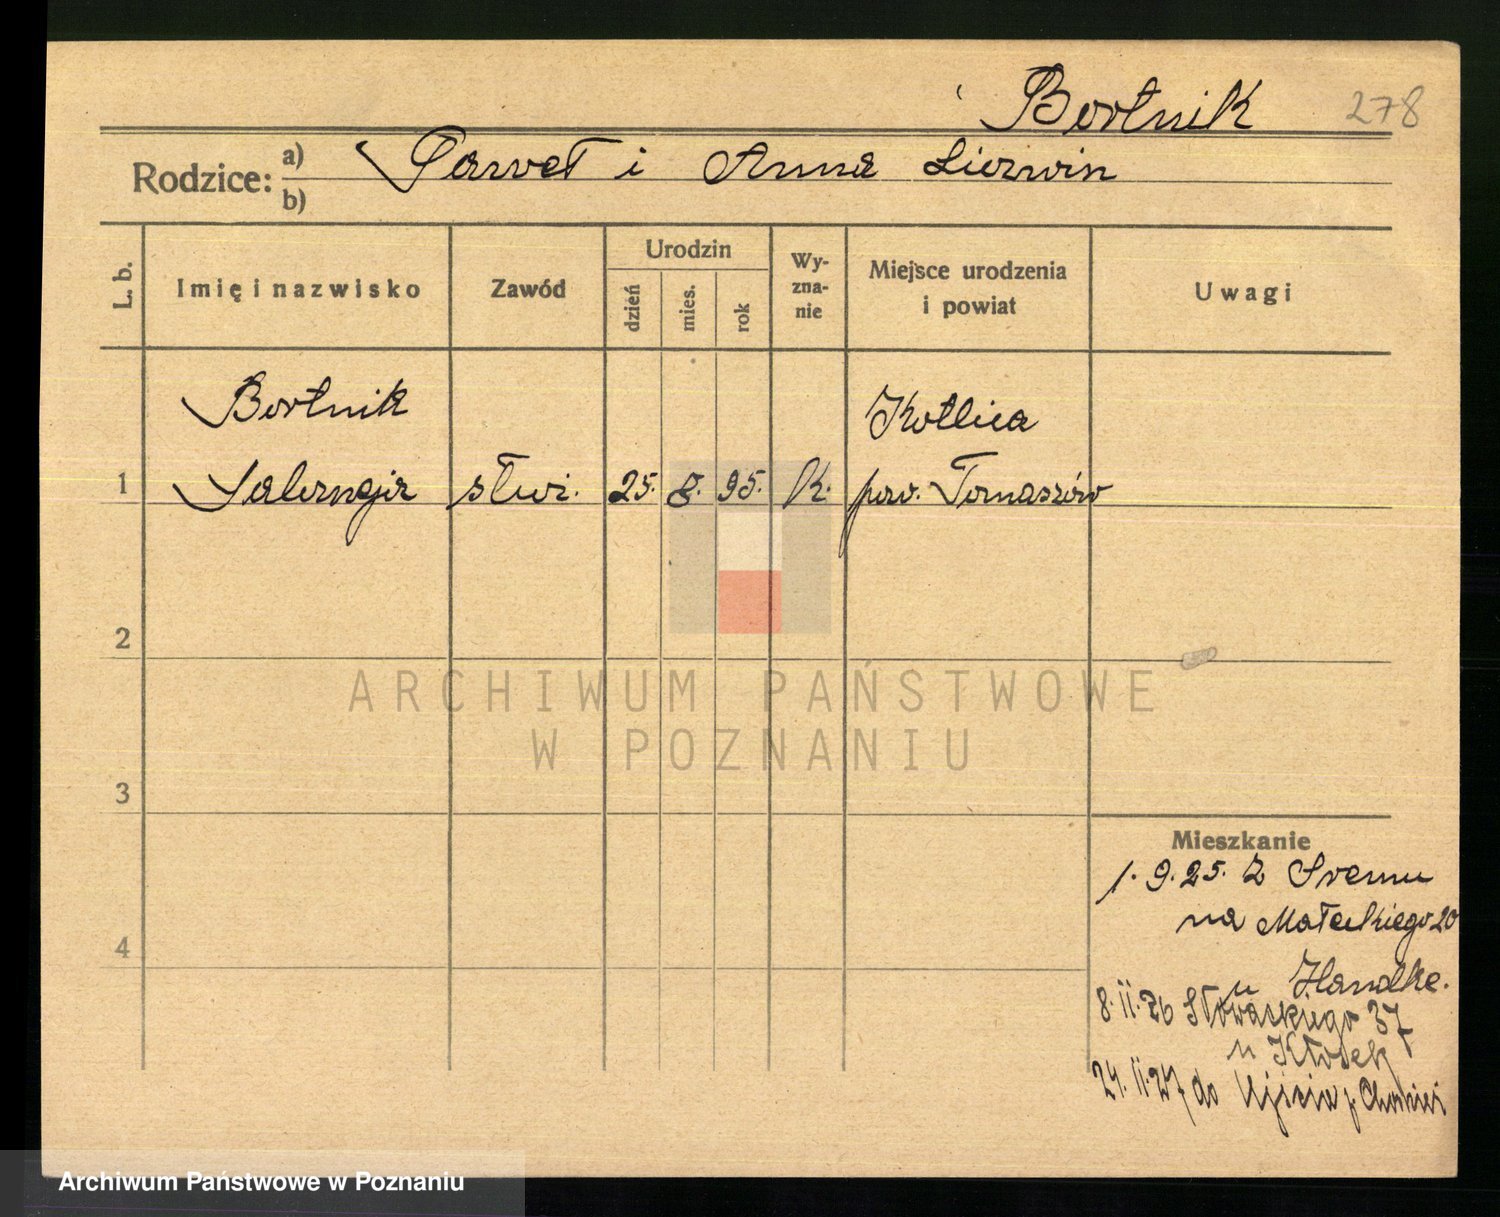 Bortnik 278
Rodzice: a) Paweł i Anna Lierwin
b)
L. b. Imię i nazwisko Zawód Urodzin dzień mies. rok Wyznanie Miejsce urodzenia i powiat Uwagi
Bortnik Kotlica
1 służ. 25. 8. 95. k. pow. Tomaszów
2
3
4
Mieszkanie
1. 9. 25. z Śremu
na Małeckiego 20
u Handke.
8. II. 26 Słowackiego 37
u Kłosek
24. II. 27 do Ujścia p. Chodzież
ARCHIWUM PAŃSTWOWE
W POZNANIU
Archiwum Państwowe w Poznaniu